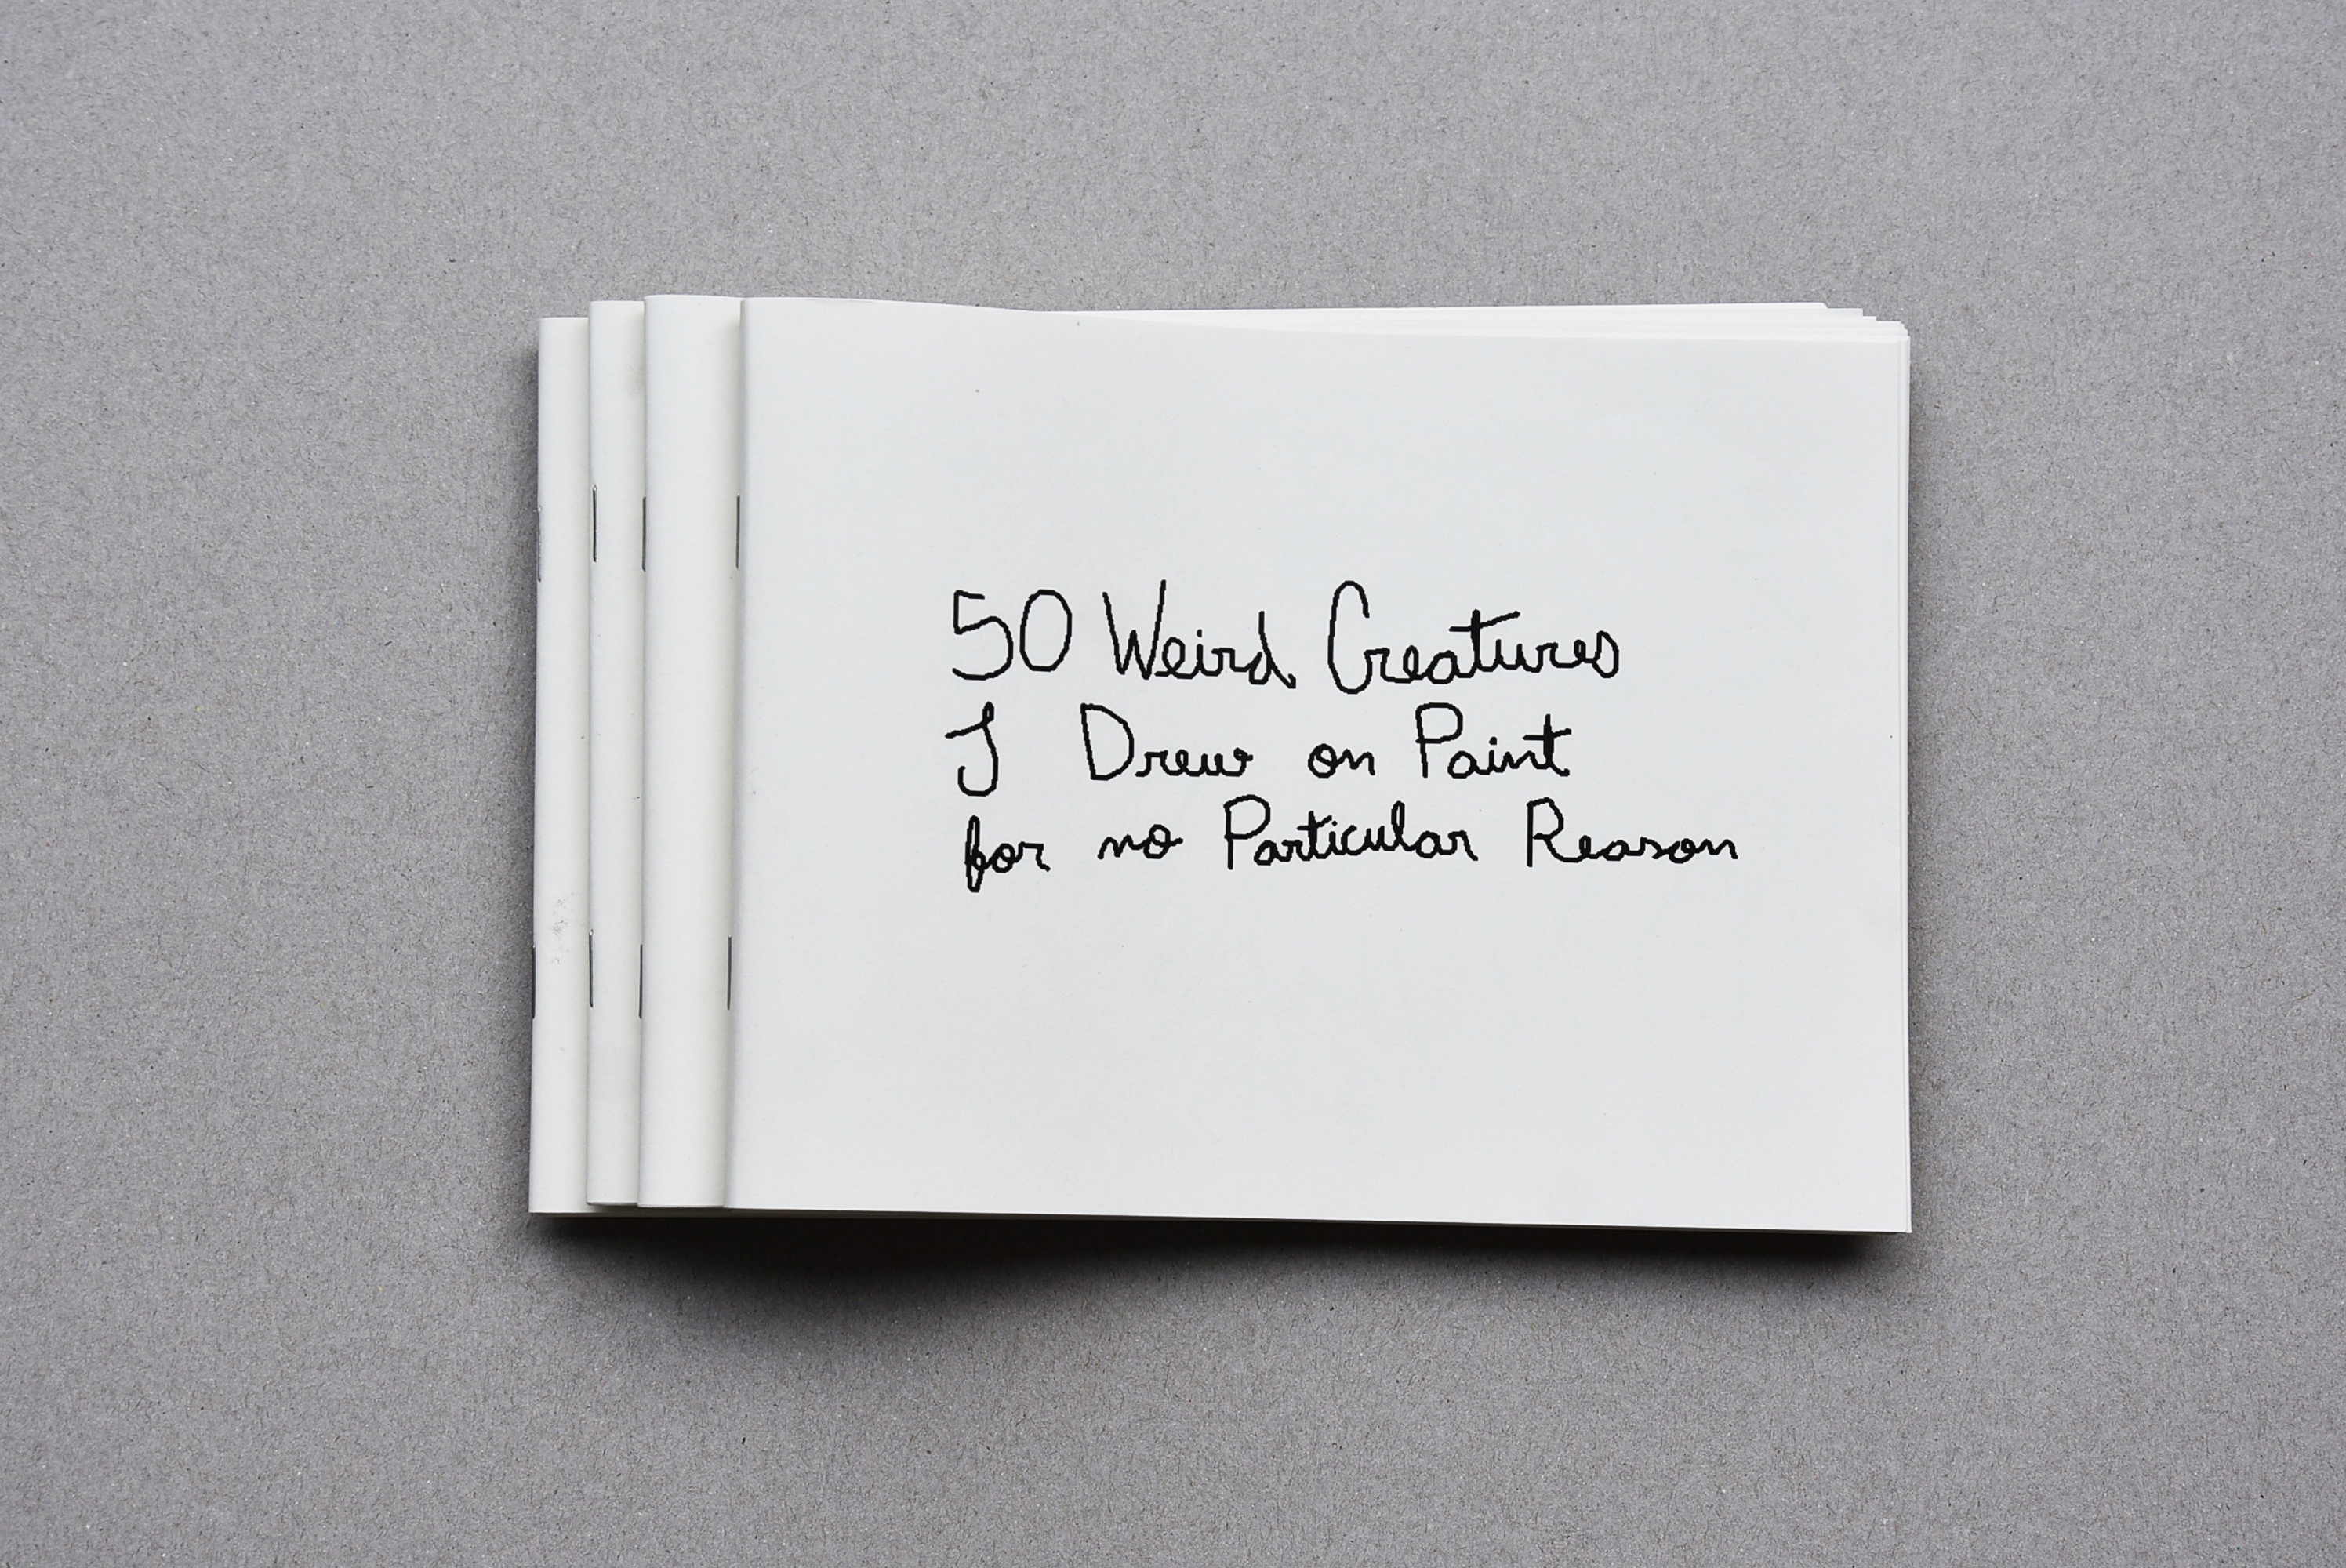 50 Weird Creatures
I Drew on Paint
for no Particular Reason